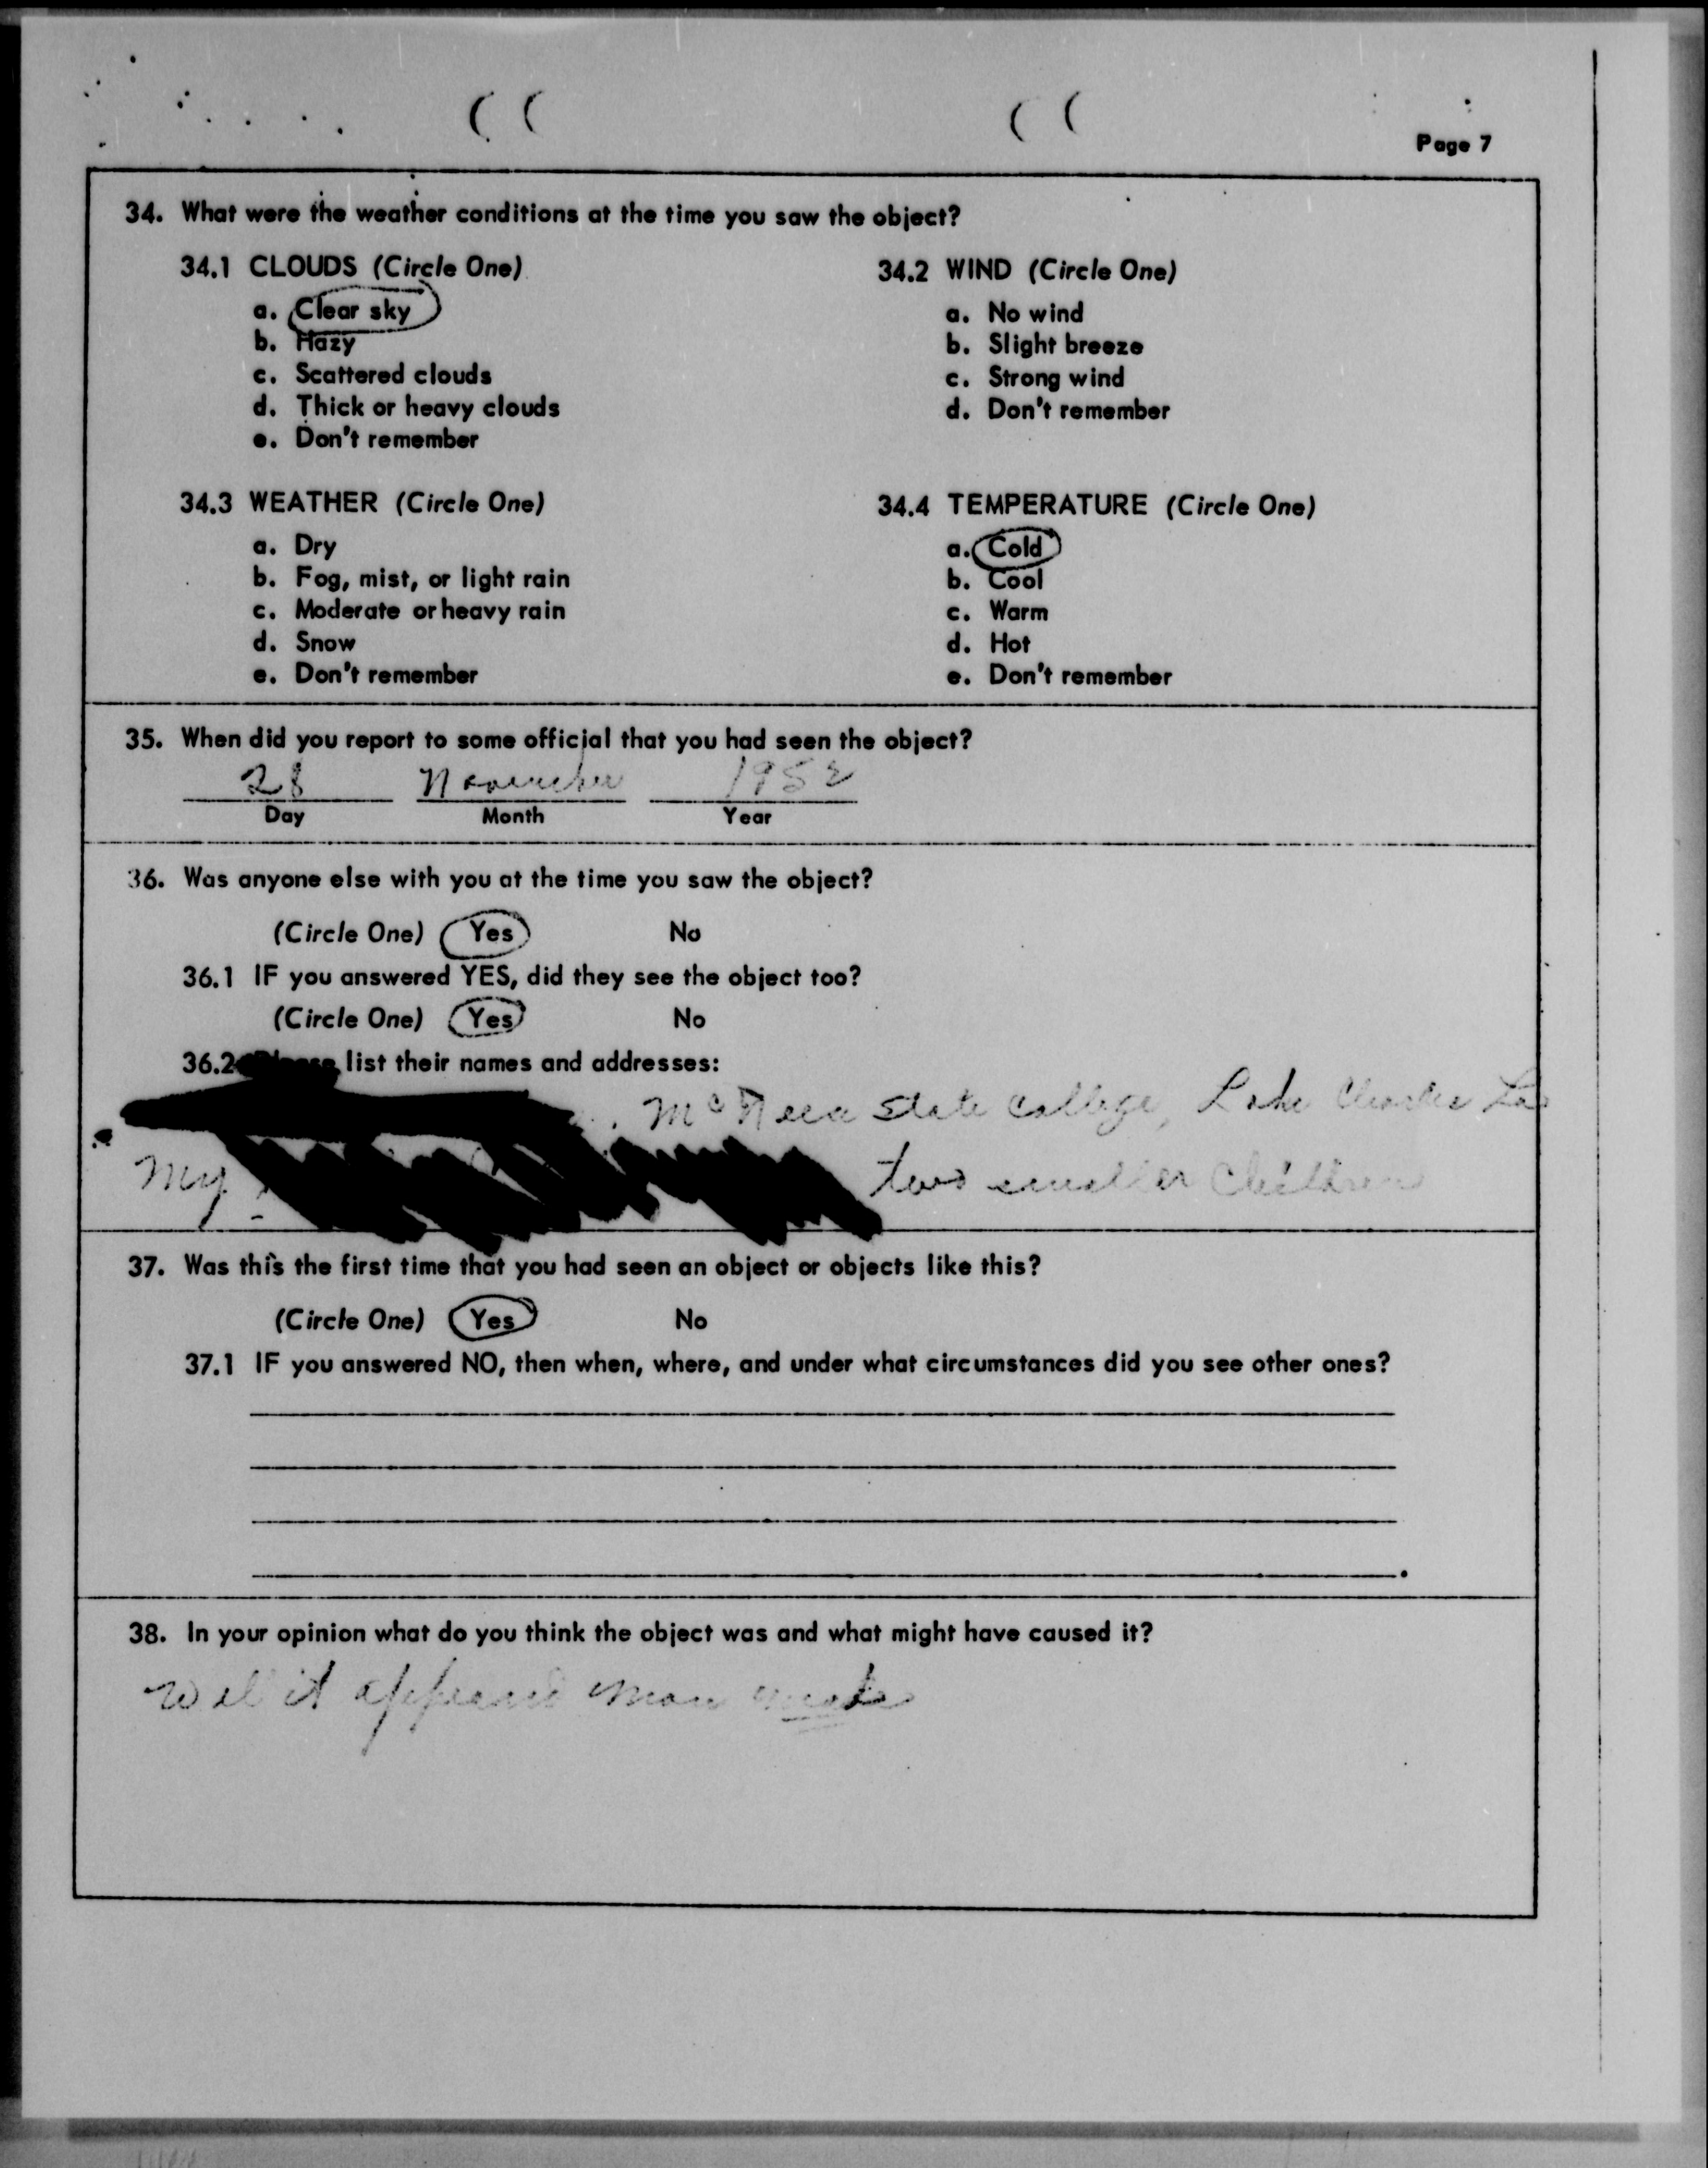 Page 7
34. What were the weather conditions at the time you saw the object?
34.1 CLOUDS (Circle One)
a. Clear sky
b. Hazy
c. Scattered clouds
d. Thick or heavy clouds
e. Don't remember
34.2 WIND (Circle One)
a. No wind
b. Slight breeze
c. Strong wind
d. Don't remember
34.3 WEATHER (Circle One)
a. Dry
b. Fog, mist, or light rain
c. Moderate or heavy rain
d. Snow
e. Don't remember
34.4 TEMPERATURE (Circle One)
a. Cold
b. Cool
c. Warm
d. Hot
e. Don't remember
35. When did you report to some official that you had seen the object?
28 November 1952
Day Month Year
36. Was anyone else with you at the time you saw the object?
(Circle One) Yes No
36.1 IF you answered YES, did they see the object too?
(Circle One) Yes No
36.2 Please list their names and addresses:
State College, Lake Charles La
My two smaller children
37. Was this the first time that you had seen an object or objects like this?
(Circle One) Yes No
37.1 IF you answered NO, then when, where, and under what circumstances did you see other ones?
38. In your opinion what do you think the object was and what might have caused it?
Well it appeared man made